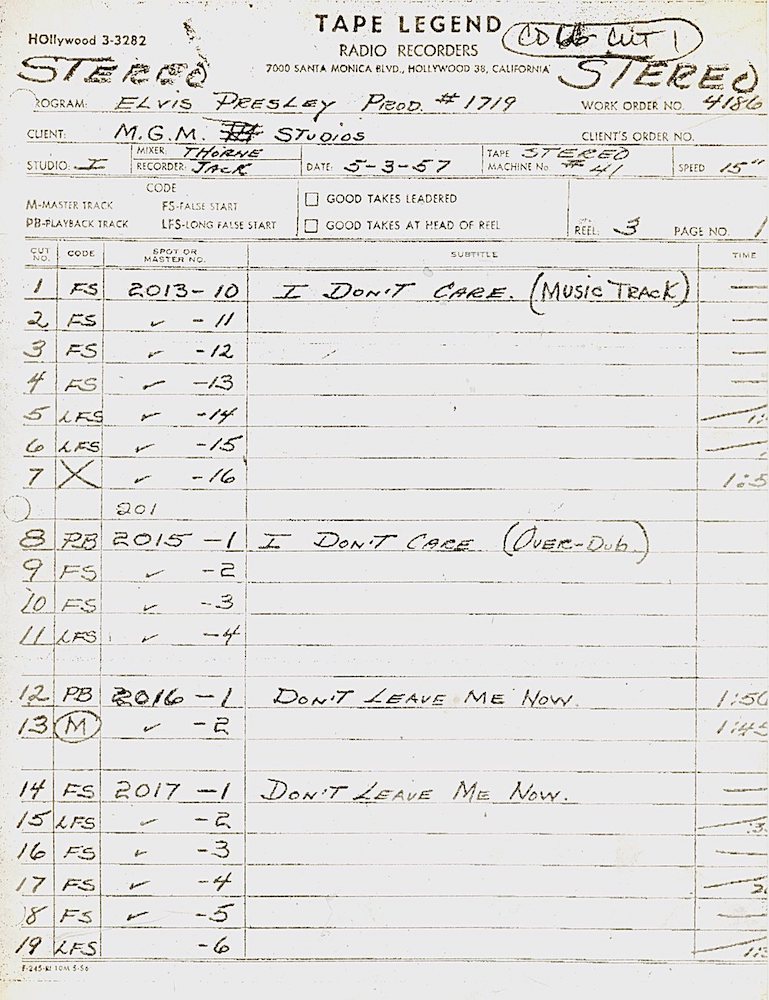 TAPE LEGEND
HOllywood 3-3282
RADIO RECORDERS
CD 66 CUT 1
STEREO
7000 SANTA MONICA BLVD., HOLLYWOOD 38, CALIFORNIA
STEREO
ROGRAM: ELVIS PRESLEY PROD. #1719 WORK ORDER NO. 4186
CLIENT: M.G.M. STUDIOS CLIENT'S ORDER NO.
STUDIO: I MIXER: THORNE RECORDER: JACK DATE: 5-3-57 TAPE MACHINE No STEREO #41 SPEED 15"
CODE
M-MASTER TRACK FS-FALSE START GOOD TAKES LEADERED
PB-PLAYBACK TRACK LFS-LONG FALSE START GOOD TAKES AT HEAD OF REEL REEL: 3 PAGE NO. 1
CUT NO. CODE SPOT OR MASTER NO. SUBTITLE TIME
1 FS 2013-10 I DON'T CARE. (MUSIC TRACK) —
2 FS ✓ -11 —
3 FS ✓ -12 —
4 FS ✓ -13 —
5 LFS ✓ -14
6 LFS ✓ -15
7 X ✓ -16 1:5
201
8 PB 2015 -1 I DON'T CARE (OVER-DUB.)
9 FS ✓ -2
10 FS ✓ -3
11 LFS ✓ -4
12 PB 2016 -1 DON'T LEAVE ME NOW. 1:50
13 M ✓ -2 1:45
14 FS 2017 -1 DON'T LEAVE ME NOW. —
15 LFS ✓ -2
16 FS ✓ -3 —
17 FS ✓ -4
18 FS ✓ -5 —
19 LFS -6
F-245-RI 10M 5-56